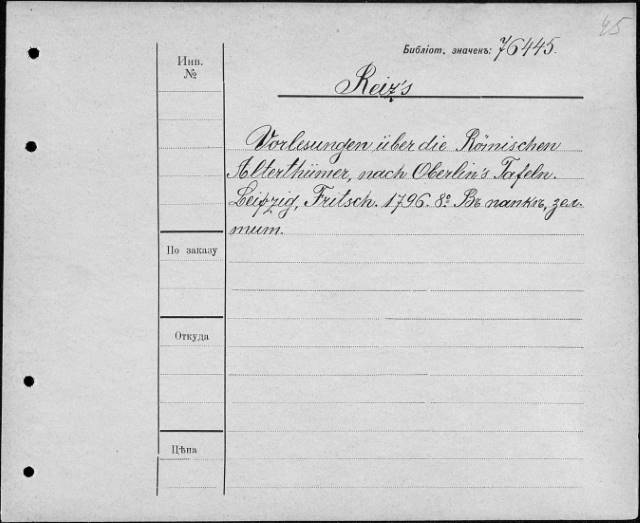 45
Библіот. значекъ: 76445.
Инв.
№
Reiz's
Vorlesungen über die Römischen
Alterthümer, nach Oberlin's Tafeln.
Leipzig, Fritsch. 1796. 8º. Въ папкѣ, зел.
тит.
По заказу
Откуда
Цѣна